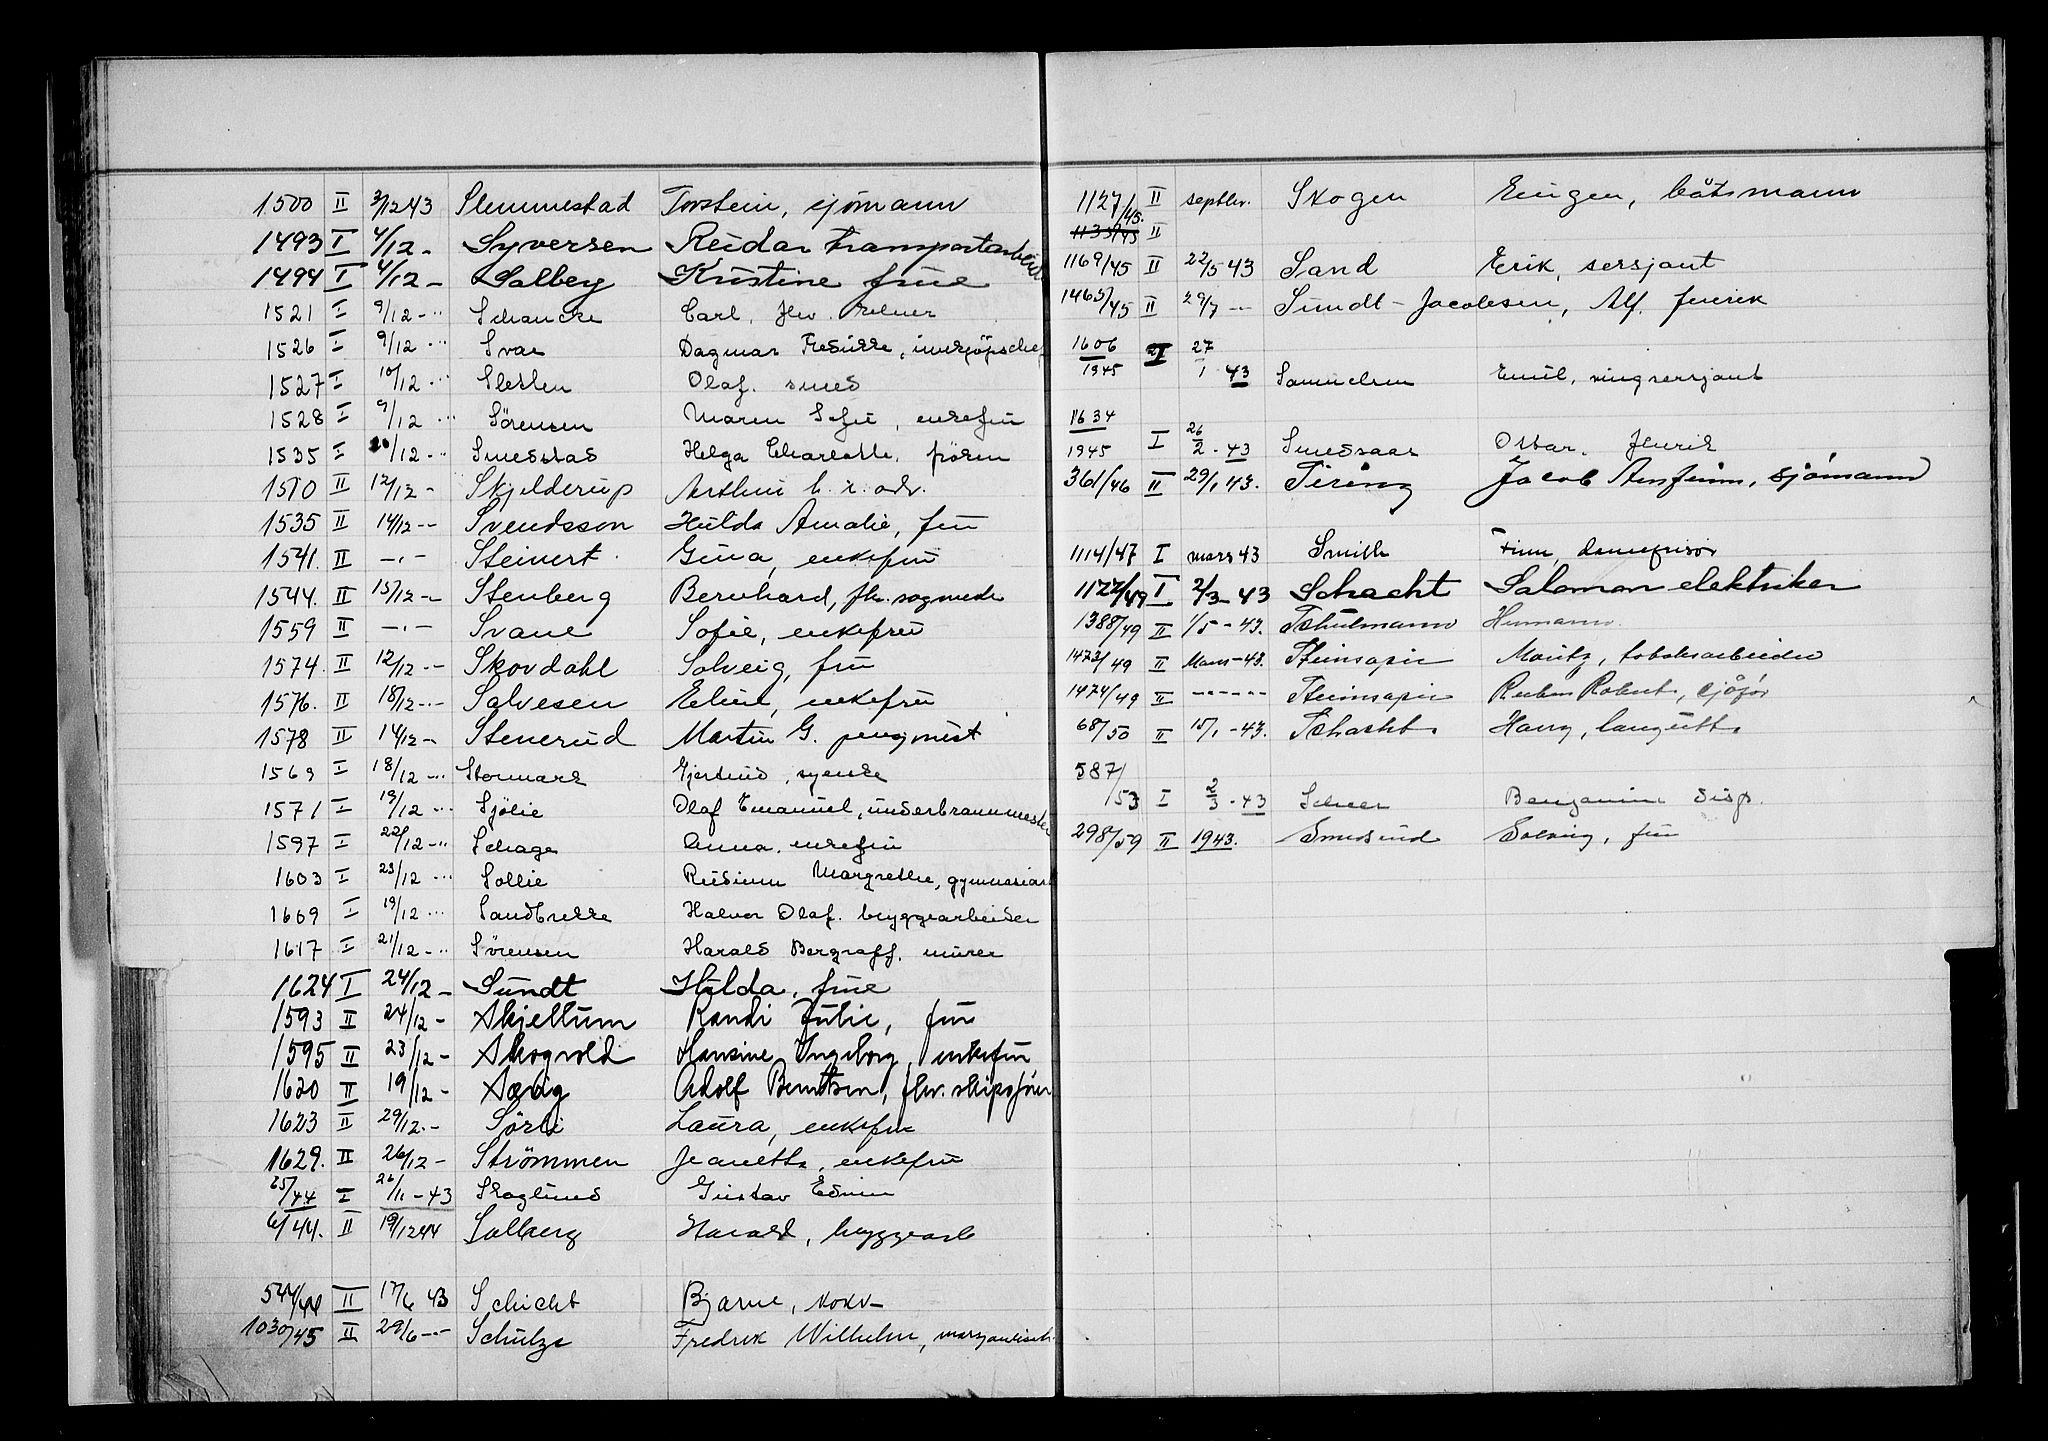 1500 II 3/12 43 Slemmestad Torstein, sjömann
1493 I 4/12 - Syversen Reidar transportarbeid
1494 I 4/12 - Solberg Kristine frue
1521 I 9/12 - " Schancke Carl, fhv.
1526 I 9/12 - " Svae Dagmar Fredrikke,
1527 I 10/12 - " Sletten Olaf. smed
1528 I 9/12 - " Sörensen Maren Sofie, enkefru
1535 I 10/12 - " Smedstad Helga Charlotte, fröken
1510 II 12/12 - Skjelderup Arthur h. r. adv.
1535 II 14/12 - - Svendsson Hulda Amalie, fru
1541. II - " - Steinert. Gina, enkefru
1544. II 15/12 - - Stenberg Bernhard, fhv. sagmester
1559 II - " - Svane Sofie, enkefru
1574. II 12/12 - - Skovdahl Solveig, fru
1576. II 18/12 - - Salvesen Eline, enkefru
1578 II 14/12 - Stenerud Martin G. pensjonist
1569 I 18/12 - " Stormark Gjertrud, syerske
1571 I 19/12 - " Sjölie Olaf Emanuel, underbrannmester
1597 I 22/12 - " Schage Anna, enkefru
1603 I 23/12 - " Sollie Margrethe, gymnasiast
1609 I 19/12 - " Sandbrekke Halvor Olaf. bryggearbeider
1617 I 21/12 - " Sörensen Harald Bergraff, murer
1624 I 24/12 - Sundt Hilda, frue
1593 II 24/12 - Skjellum Randi Julie, fru
1595 II 23/12 - Skogvold Hansine Ingeborg, enkefru
1620 II 19/12 - Sævig Adolf Berntsen, fhv. skipsförer
1623 II 29/12. - Sörli Laura, enkefru
1629. II 26/12 - Strömmen Jeanette, enkefru
25/44 I 26/11 - 43 Skoglund Gustav Edvin
6/44. II 19/12 44 Solberg Harald, bryggearb
544/44 II 17/6 43 Schicht Bjarne, kokk
1030/45 II 29/6 - - Schulze Fredrik Wilhelm,
1127/45. II septbr. Skogen Eugen, båtsmann
1133/45 II
1169/45 II 22/5 43 Sand Erik, sersjant
1465/45 II 29/7 - - Sundt - Jacobsen, Alf Henrik
1606/1945 I 27/1 43 Samuelsen Emil, vingsersjant
1634/1945 I 26/2 - 43 Smedsaas Ottar, Henrik
361/46 II 29/1 43. Siring Jacob Arnfinn, sjömann
1114/47 I mars 43 Smith Finn, damefrisör
1172/49 I 2/3 - 43 Schacht Salomon elektriker
1388/49 II 1/5 - 43. Schulmann Hermann
1473/49 II Mars - 43. Steinsapir Moritz, tobakarbeider
1474/49 II - - - - - - Steinsapir Ruben Robert, sjåför
68/50 II 15/1 - 43. Schacht Harry,
587/53 I 2/3 - 43 Scheer Benjamin disp.
298/59 II 1943. Smedsrud Solveig, fru